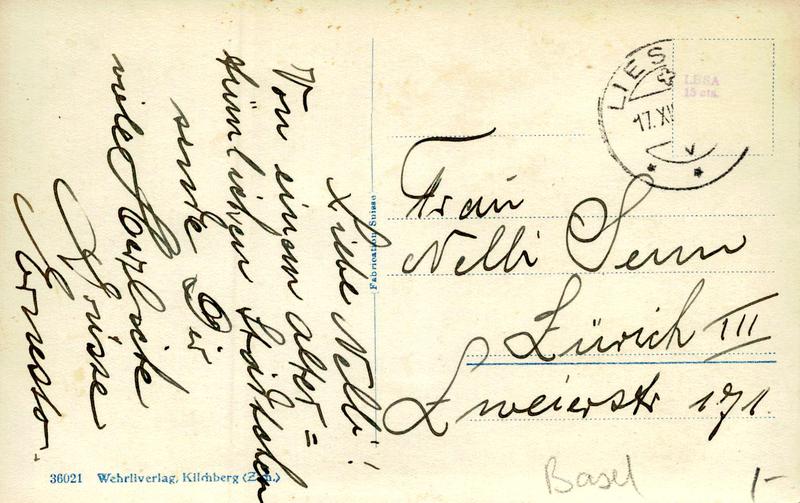 Liebe Nelli!
Von einem alter=
tümlichen Städtchen
sende Dir
viele Herzliche
Grüsse
Ernesto.
Fabrication Suisse
LIES
17.XI
V
LBSA
15 cts.
Frau
Nelli Senn
Zürich III
Zweierstr 171.
36021 Wehrliverlag, Kilchberg (Zch.)
Basel
1-